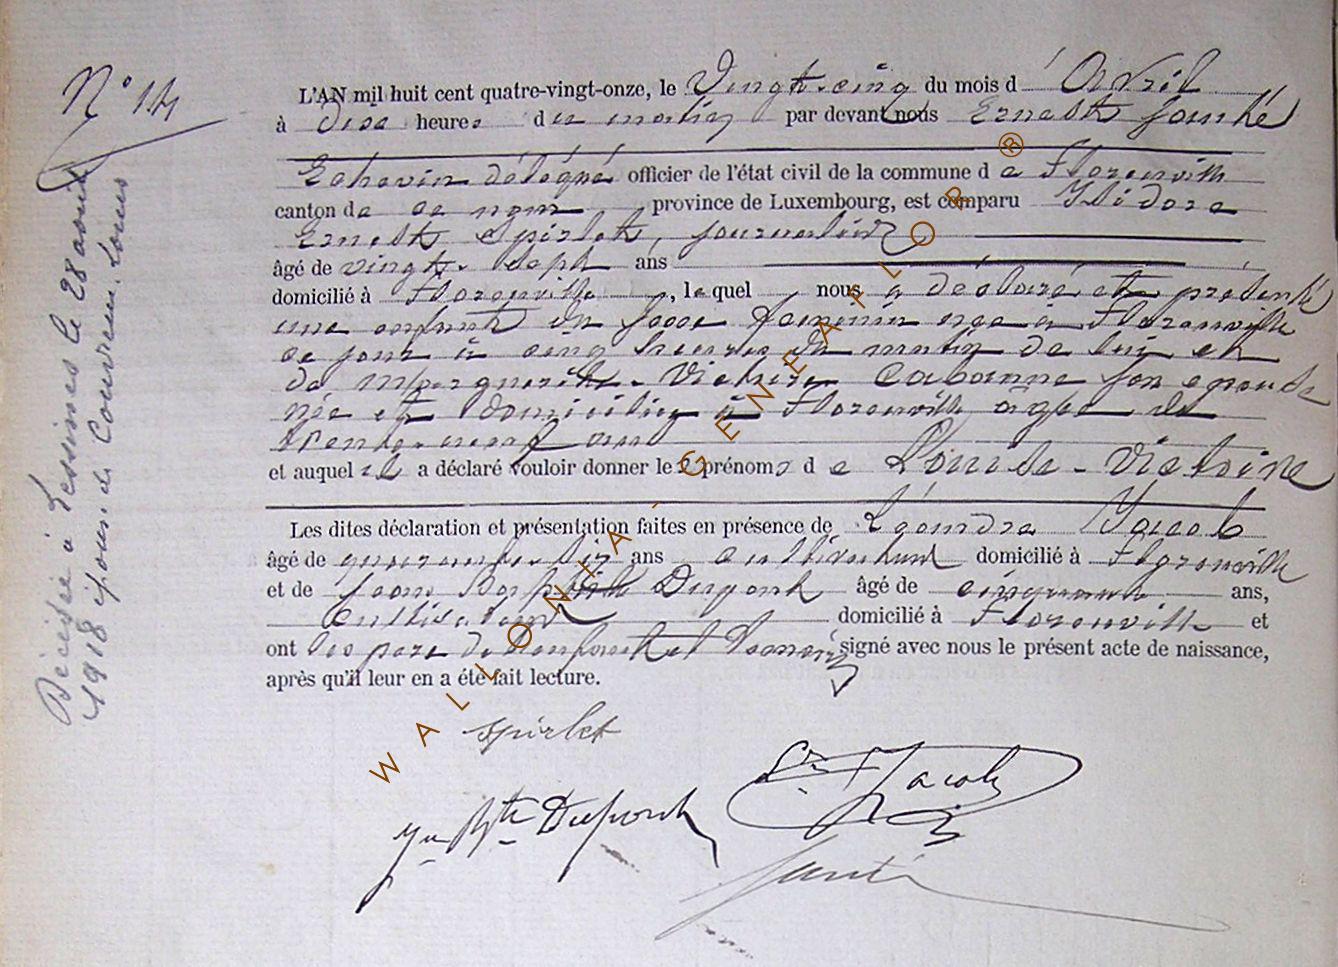 N° 14
L'AN mil huit cent quatre-vingt-onze, le Vingt-cinq du mois d'Avril
à dix heures du matin par devant nous Ernest
Echevin délégué officier de l'état civil de la commune de Florenville
canton de ce nom, province de Luxembourg, est comparu Isidore
Ernest Spirlet, journalier
âgé de vingt-sept ans
domicilié à Florenville, lequel nous a déclaré et présenté
une enfant du sexe féminin née à Florenville
ce jour à cinq heures du matin de lui et
de Marguerite-Victoire Cabanne son épouse
née et domiciliée à Florenville âgée de
trente-neuf ans
et auquel il a déclaré vouloir donner les prénoms de Louise-Victoire
Les dites déclaration et présentation faites en présence de Léandre Jacob
âgé de quarante-six ans cultivateur domicilié à Florenville
et de Jean Bapte Dupont âgé de cinquante ans,
Cultivateur domicilié à Florenville et
ont les père de l'enfant et témoins signé avec nous le présent acte de naissance,
après qu'il leur en a été fait lecture.
Spirlet
Jn Bte Dupont
Jacob
Décédée à Lessines le 28 août
1918 épouse de Couvreur Louis
WALLONIA-GENEAFLOR®